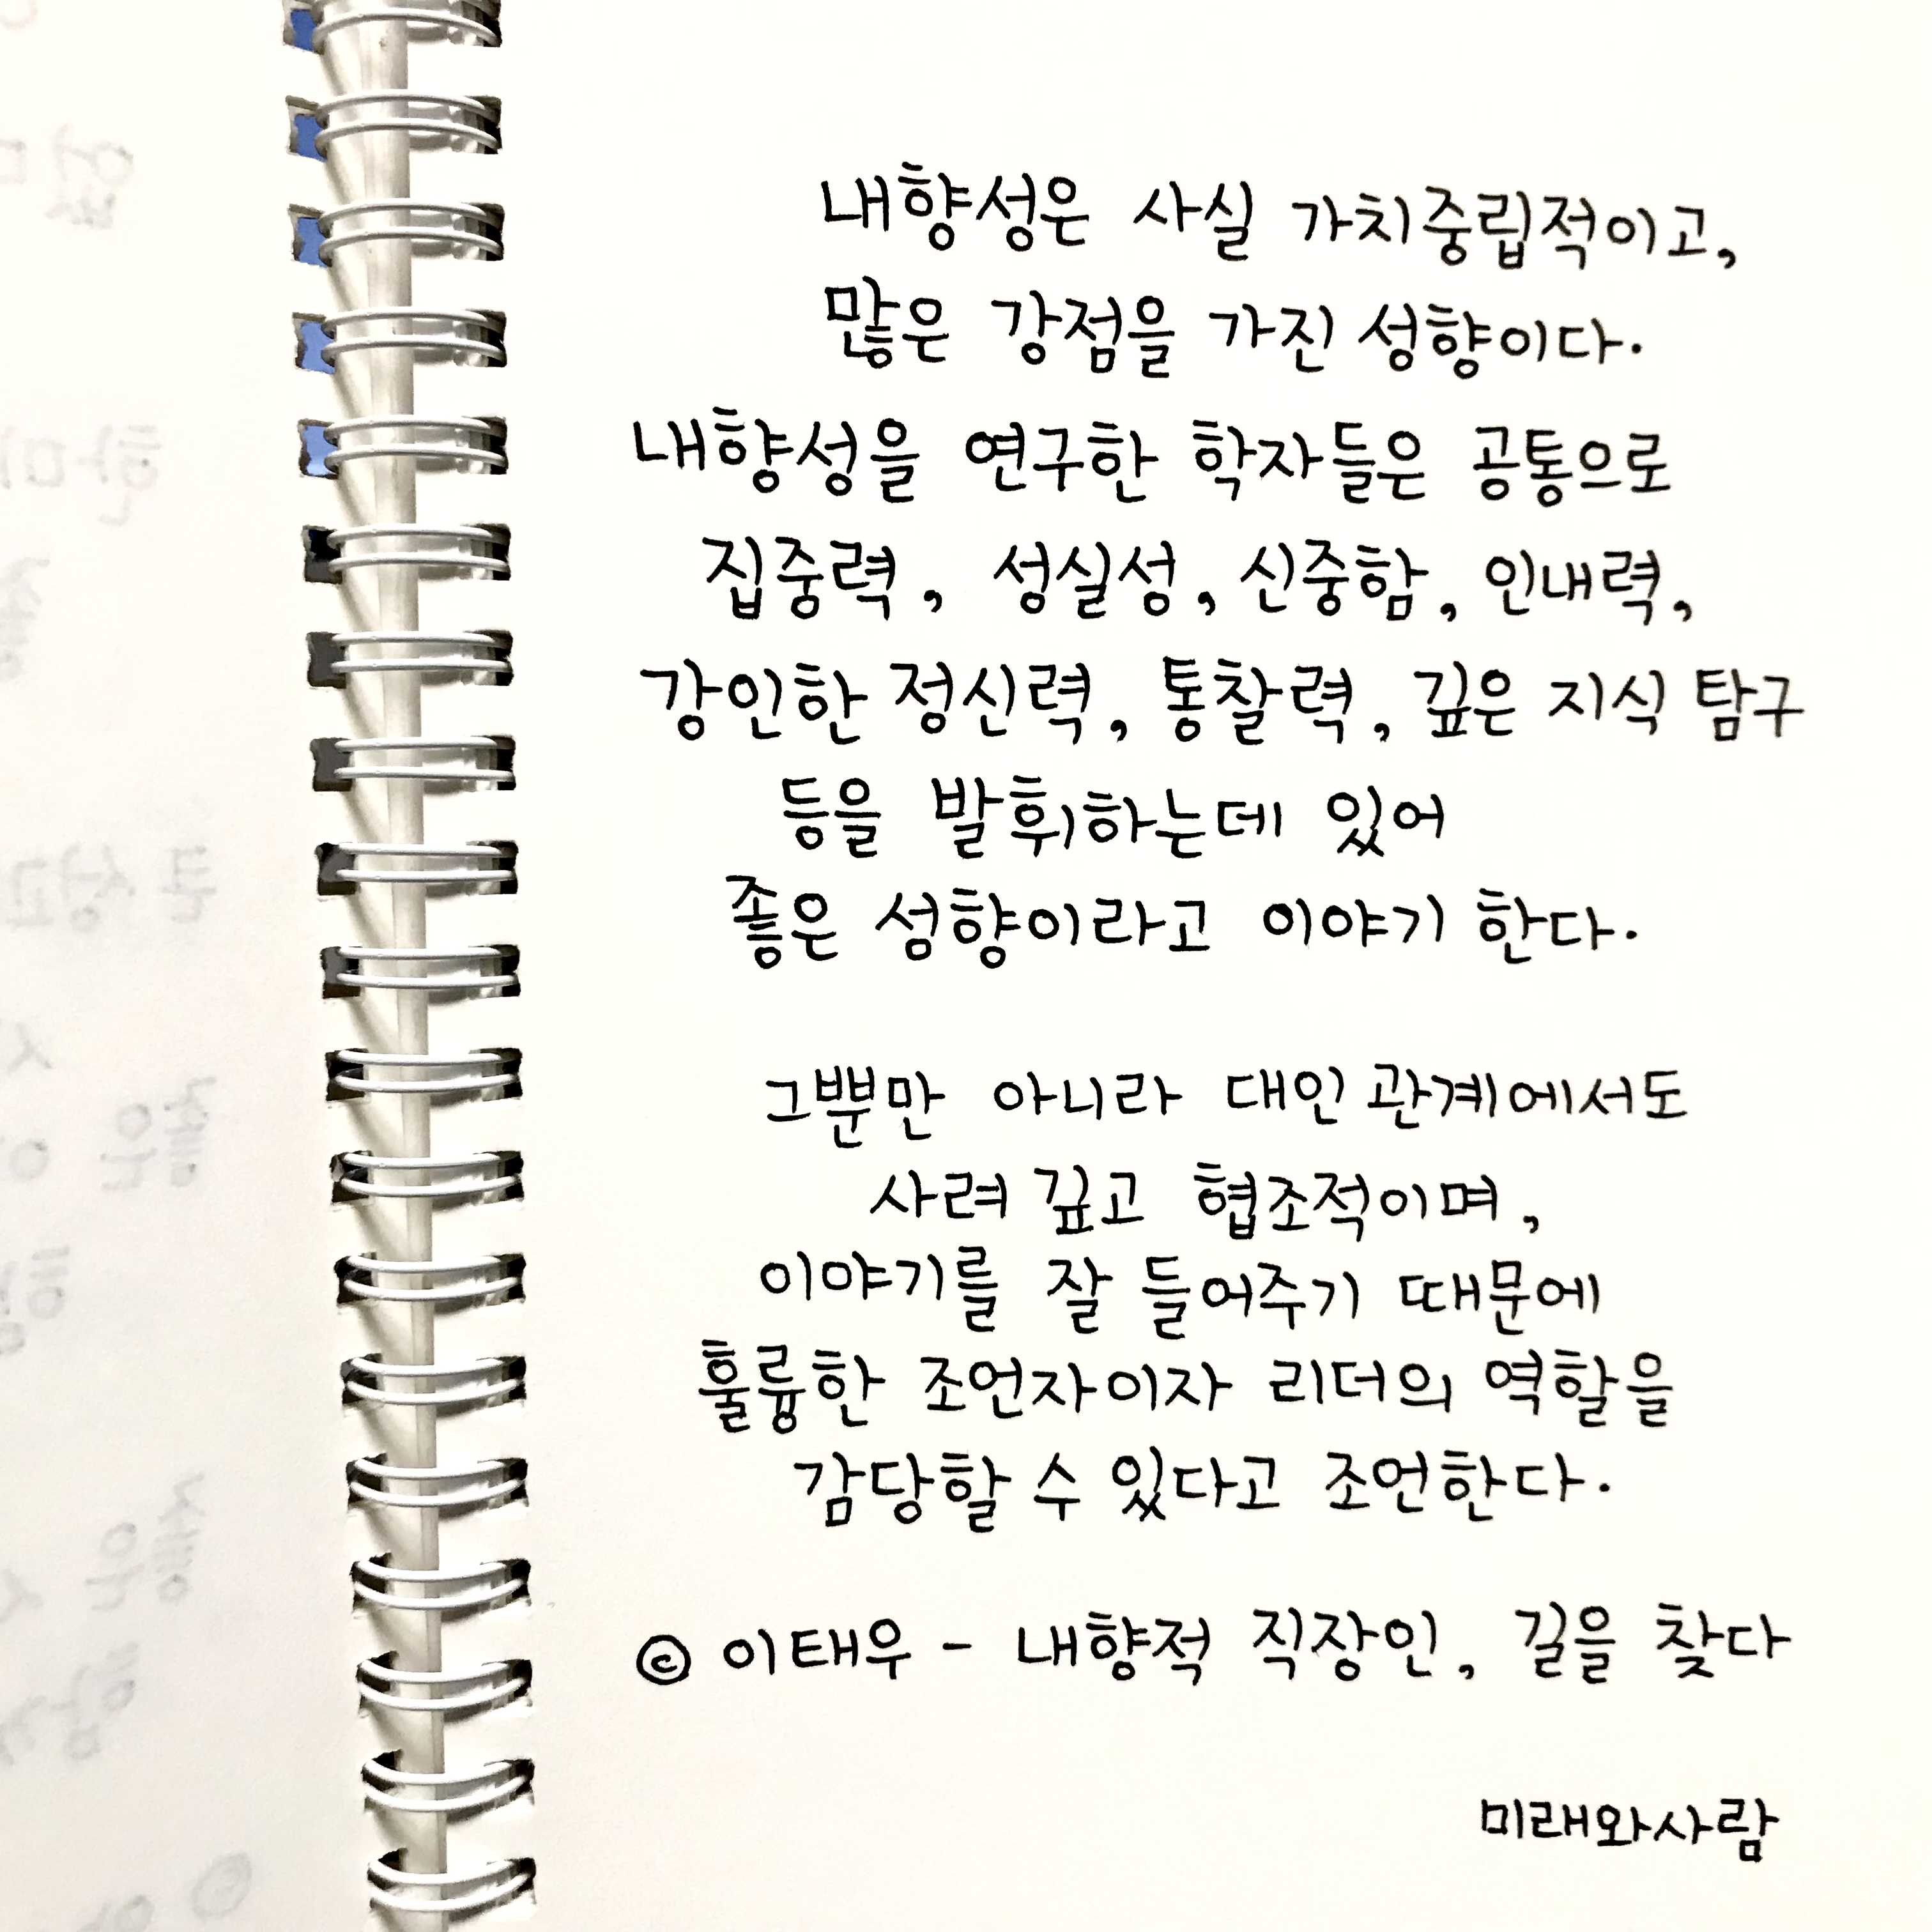 내향성은 사실 가치중립적이고,
많은 강점을 가진 성향이다.
내향성을 연구한 학자들은 공통으로
집중력, 성실성, 신중함, 인내력,
강인한 정신력, 통찰력, 깊은 지식 탐구
등을 발휘하는데 있어
좋은 성향이라고 이야기 한다.
그뿐만 아니라 대인관계에서도
사려 깊고 협조적이며,
이야기를 잘 들어주기 때문에
훌륭한 조언자이자 리더의 역할을
감당할 수 있다고 조언한다.
© 이태우 - 내향적 직장인, 길을 찾다
미래와사람